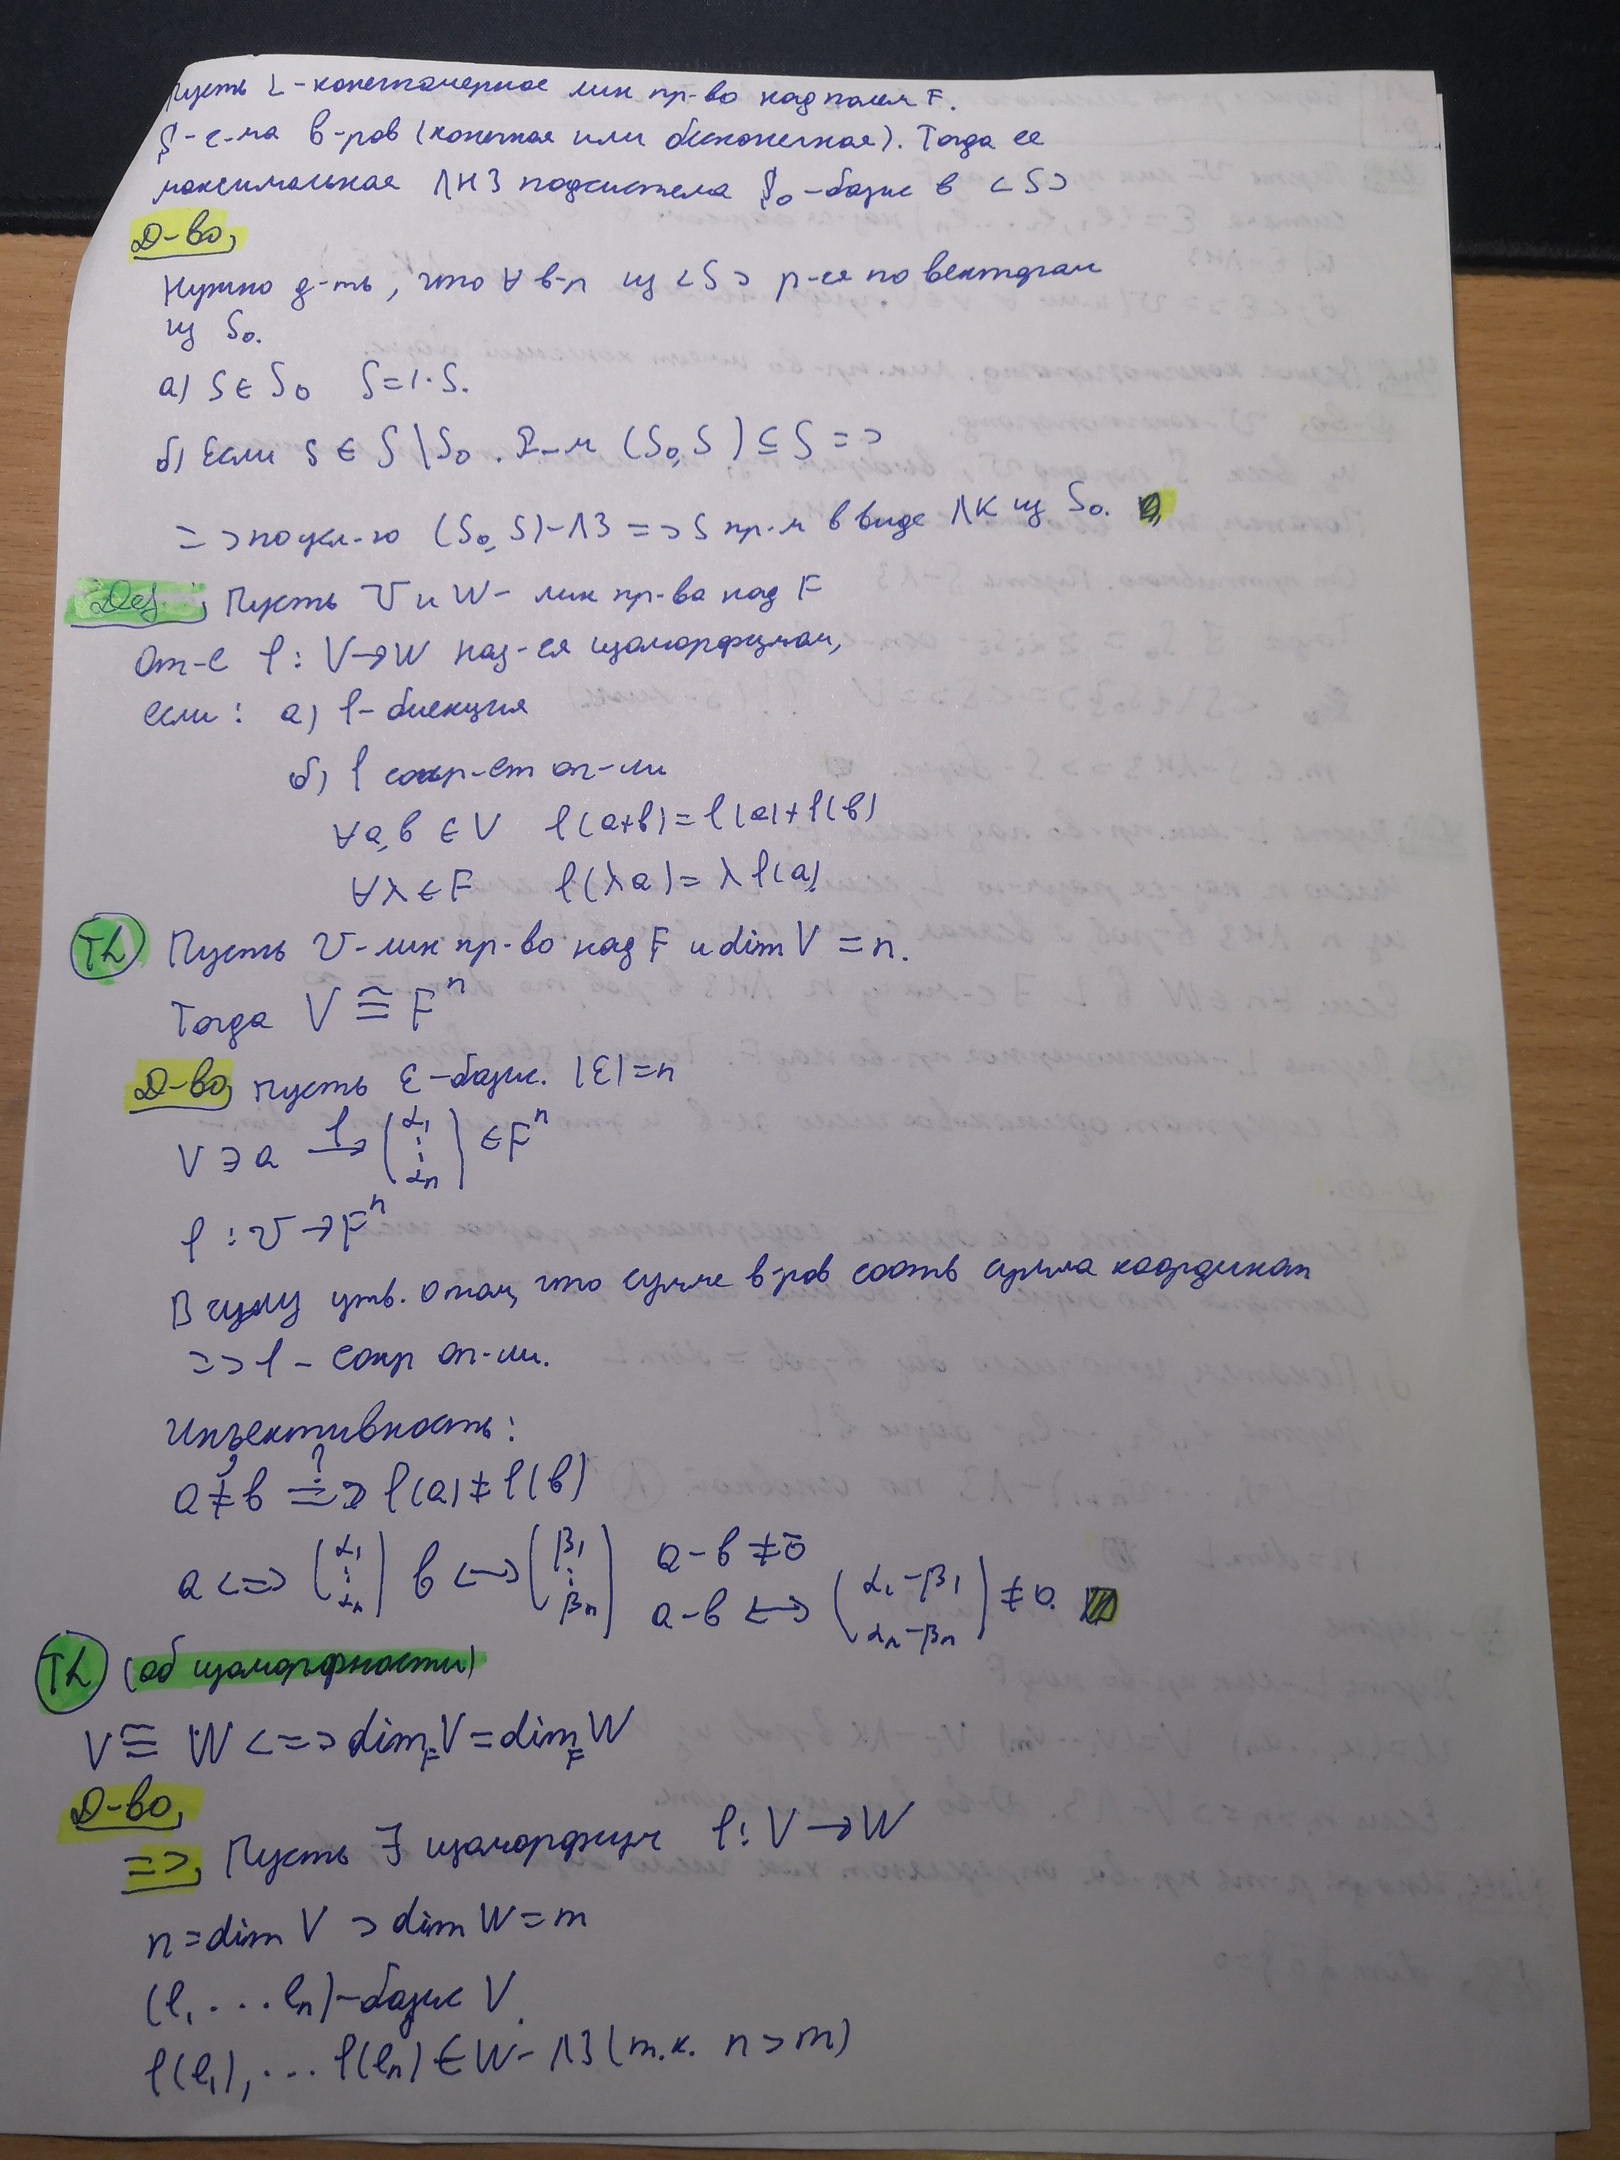 Пусть L - конечномерное лин пр-во над полем F.
S - с-ма в-ров (конечная или бесконечная). Тогда ее
максимальная ЛНЗ подсистема S₀ - базис в <S>
Д-во,
Нужно д-ть, что ∀ в-р из <S> р-ся по векторам
из S₀.
а) S ∈ S₀ S = 1·S.
б) Если s ∈ S \ S₀. Р-м (S₀, S) ⊆ S =>
=> по усл-ю (S₀, S) - ЛЗ => S пр-м в виде ЛК из S₀.
Def, Пусть V и W - лин пр-ва над F
От-е f : V → W наз-ся изоморфизмом,
если: а) f - биекция
б) f сохр-ет оп-ии
∀a, b ∈ V f(a+b) = f(a) + f(b)
∀λ ∈ F f(λa) = λ f(a)
Th Пусть V - лин пр-во над F и dim V = n.
Тогда V ≅ Fⁿ
Д-во, Пусть ε - базис. |ε| = n
V ∋ a →f (α₁ ⋮ αₙ) ∈ Fⁿ
f : V → Fⁿ
В силу утв. о том, что сумме в-ров соотв сумма координат
=> f - сохр оп-ии.
Инъективность:
a ≠ b =>? f(a) ≠ f(b)
a <=> (α₁ ⋮ αₙ) b <-> (β₁ ⋮ βₙ) a - b ≠ 0̄
a - b <-> (α₁ - β₁ αₙ - βₙ) ≠ 0.
Th (об изоморфности)
V ≅ W <=> dim_F V = dim_F W
Д-во,
=>, Пусть ∃ изоморфизм f : V → W
n = dim V > dim W = m
(e₁ ... eₙ) - базис V.
f(e₁), ... f(eₙ) ∈ W - ЛЗ (т.к. n > m)